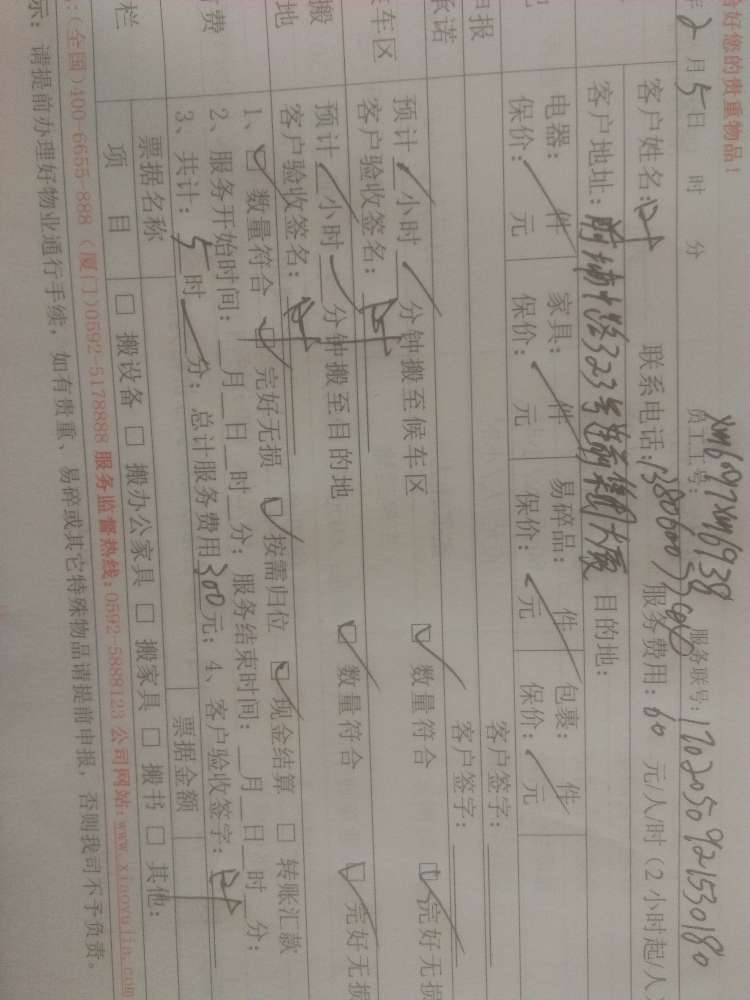 好您的贵重物品！
2月5日 时 分
员工工号：xm6097xm6938 服务联号：1702050921530180
客户姓名： 联系电话： 服务费用：60 元/人/时（2小时起/人
客户地址： 323号 大厦 目的地：
电器： 件 家具： 件 易碎品： 件 包裹： 件
保价： 元 保价： 元 保价： 元 保价： 元
报 客户签字：
承诺 客户签字：
预计 小时 分钟搬至候车区 ☑ 数量符合 ☑ 完好无损
候车区 客户验收签名：
搬 预计 小时 分钟搬至目的地 ☑ 数量符合 ☑ 完好无损
地 客户验收签名：
1、☑ 数量符合 ☑ 完好无损 ☑ 按需归位 ☑ 现金结算 □ 转账汇款
费 2、服务开始时间： 月 日 时 分；服务结束时间： 月 日 时 分；
3、共计：5时 分；总计服务费用300元；4、客户验收签字：
票据名称 票据金额
栏 项 目 □ 搬设备 □ 搬办公家具 □ 搬家具 □ 搬书 □ 其他：
:(全国)400-6655-888（厦门)0592-5178888服务监督热线:0592-5888123公司网站:www.xiaoyalin.com
示：请提前办理好物业通行手续，如有贵重、易碎或其它特殊物品请提前申报，否则我司不予负责。